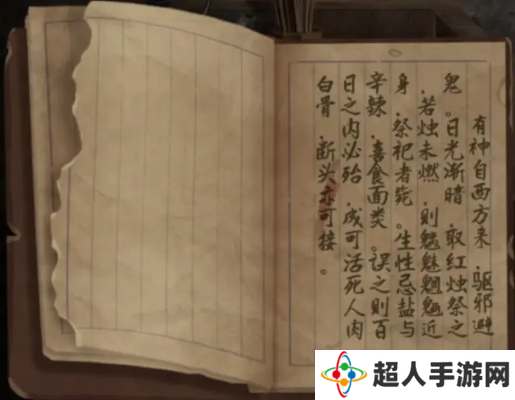 有神自西方来，驱邪避
鬼。日光渐暗，取红烛祭之
，若烛未燃，则魑魅魍魉近
身，祭祀者毙。生性忌盐与
辛辣，喜食面类。误之则百
日之内必殆，成可活死人肉
白骨，断头亦可接。
超人手游网